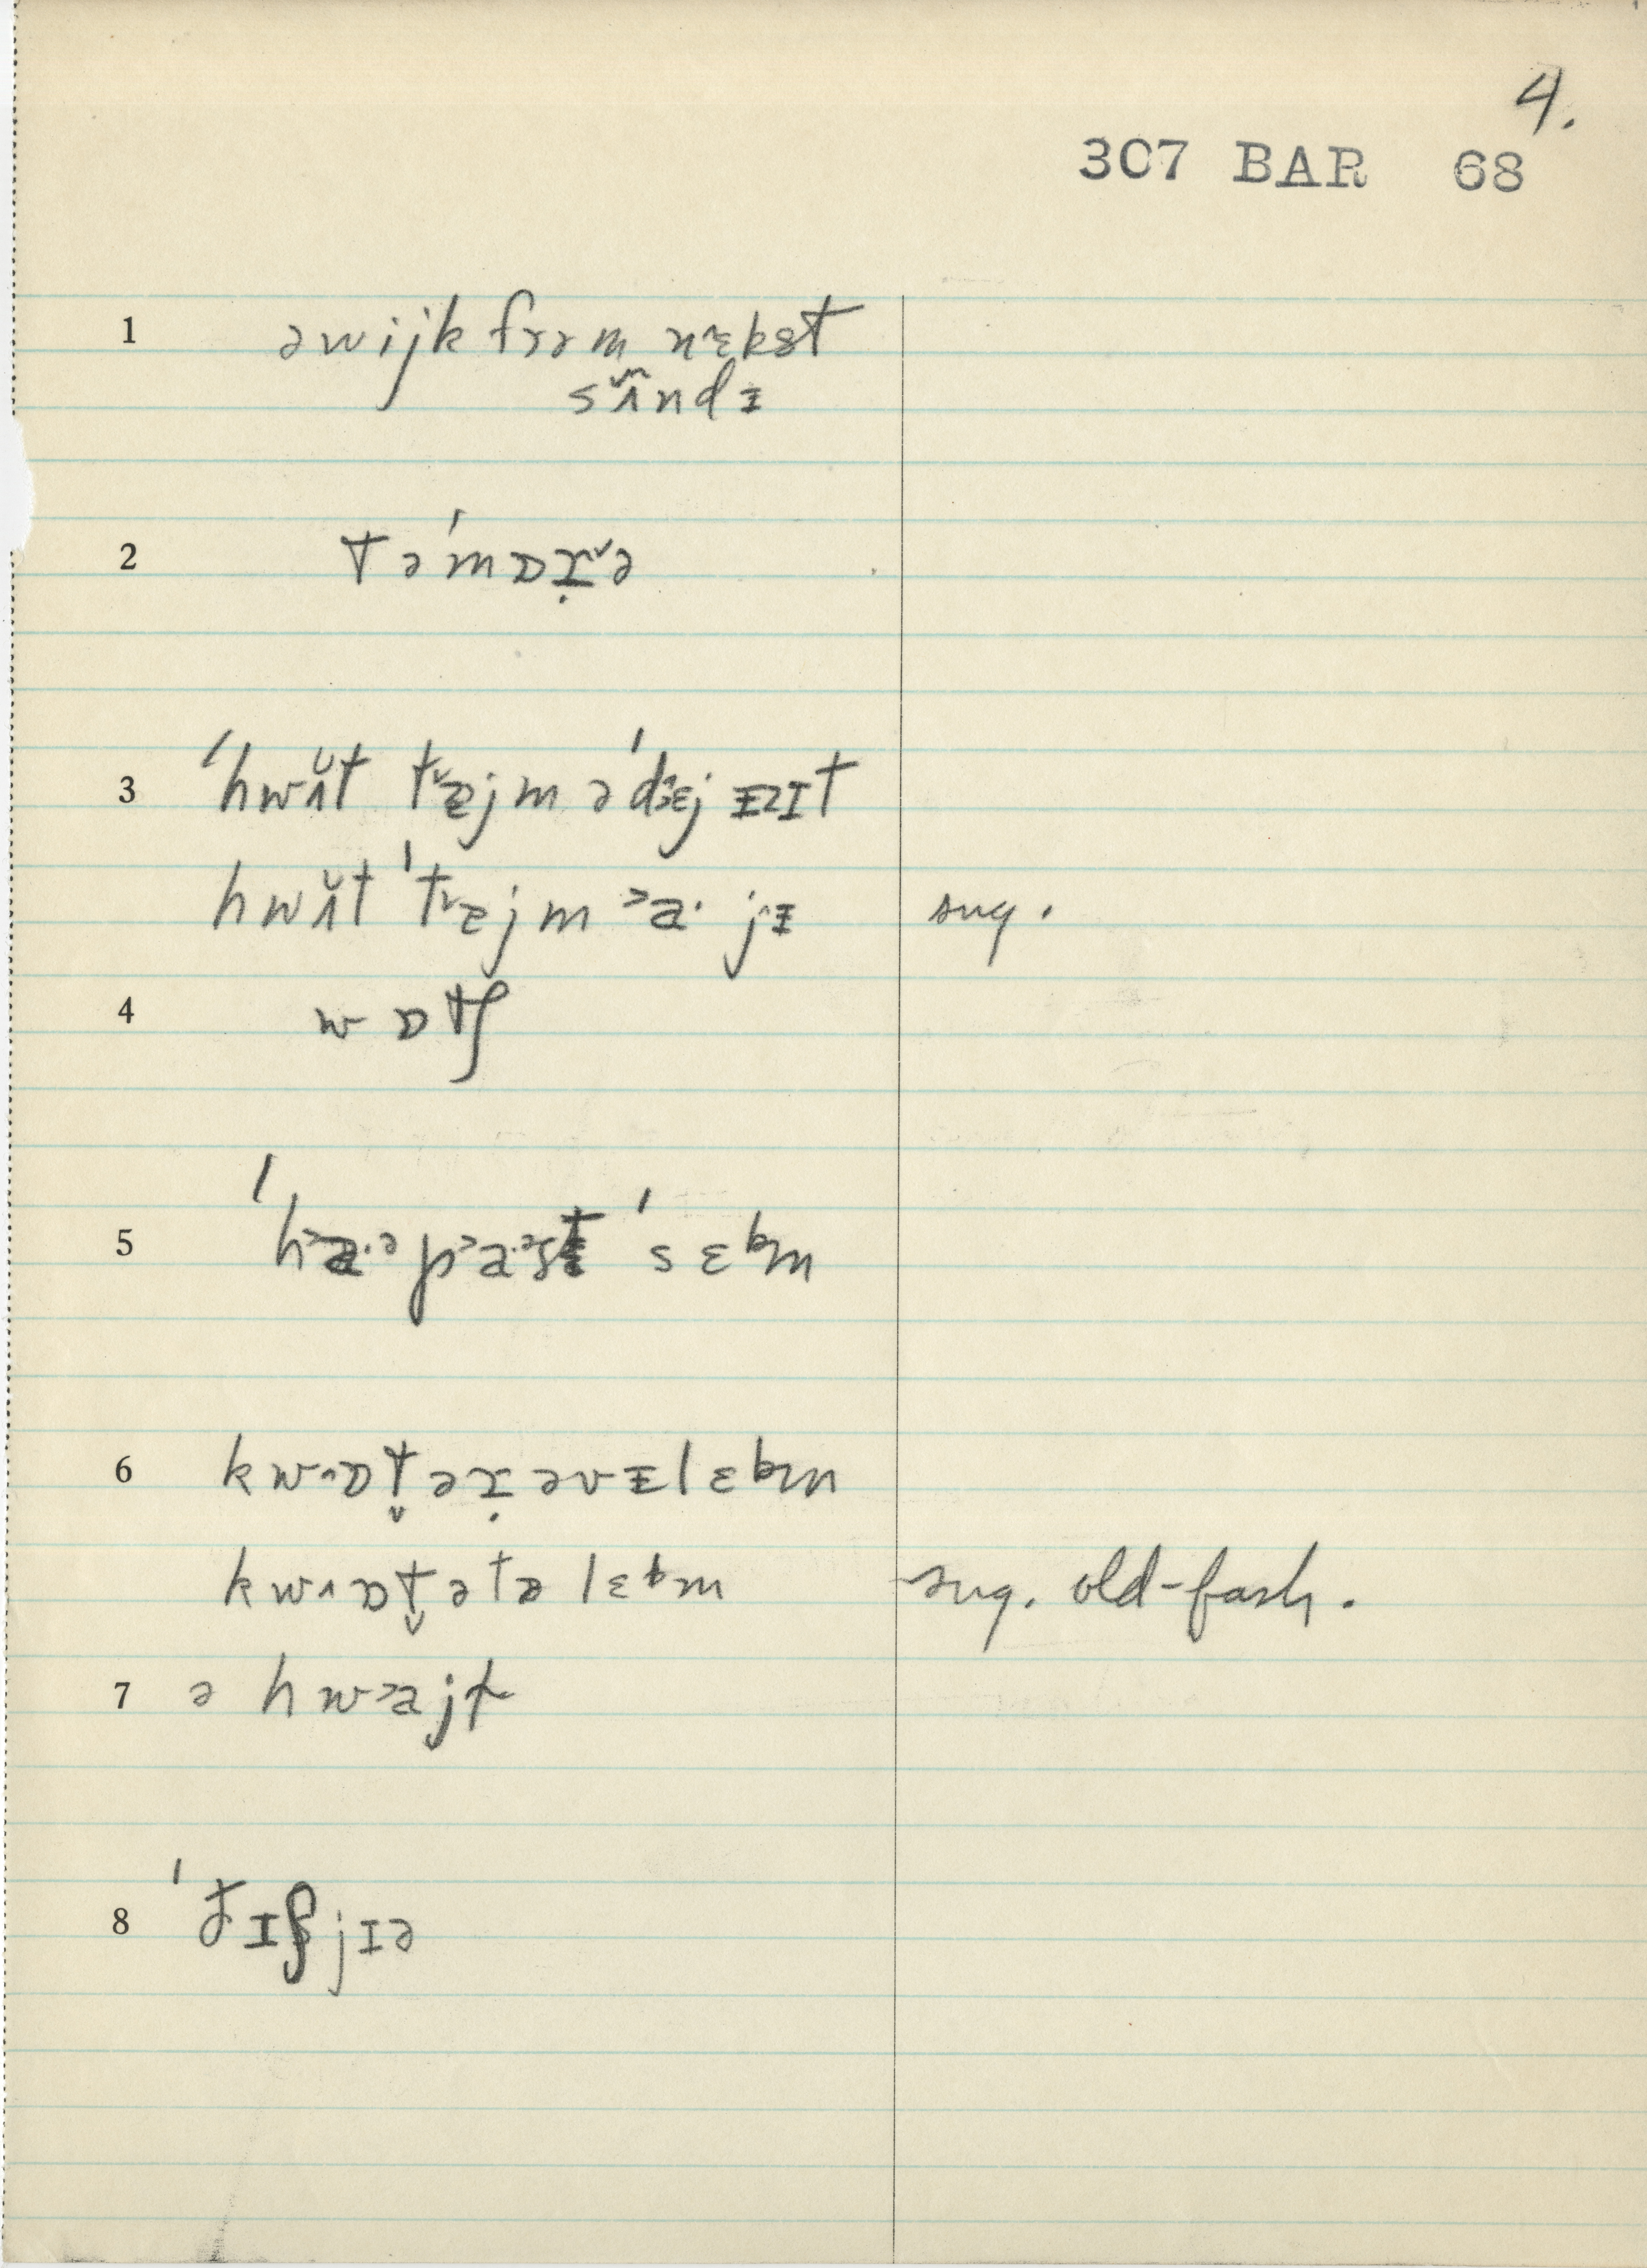 4.
307 BAR 68
1 ə wijk frəm nɛ̂kst
sʌ̃ndᵻ
2 tə'mɒɹ̣ˇə
3 'hwʌ̆t tˇɐjm ə'dɛj ᵻzɪt
hwʌ̆t 'tˇɐjm ˃a· jᵻ sug.
4 wɒtʃ
5 'h˃a·ᵊ p˃a·ᵊst 'sɛbm
6 kw˄ɒt̬əɹ̣ əvᵻlɛbm
kw˄ɒt̬ə tə lɛbm sug. old-fash.
7 ə hw˃ajt
8 'ðɪʃjɪə